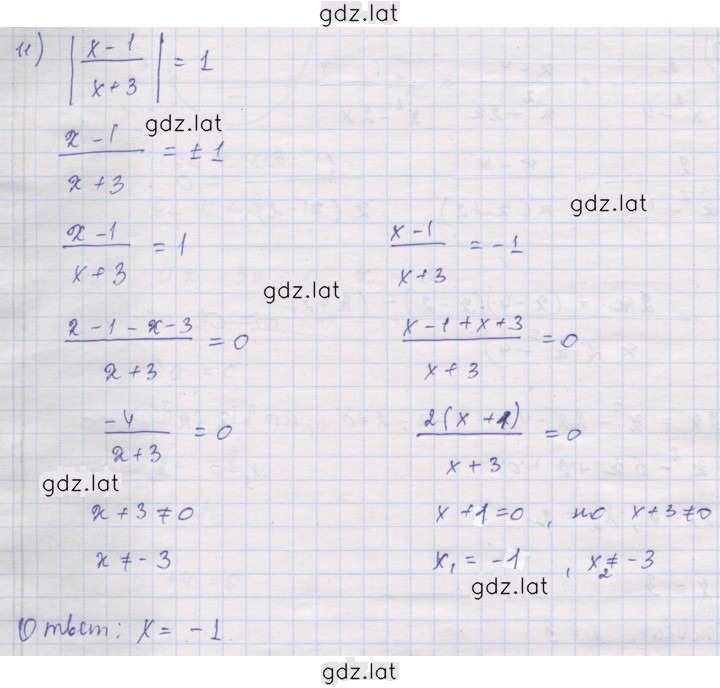 gdz.lat
11) |(x-1)/(x+3)| = 1
gdz.lat
(x-1)/(x+3) = ±1
gdz.lat
(x-1)/(x+3) = 1 (x-1)/(x+3) = -1
gdz.lat
(x-1-x-3)/(x+3) = 0 (x-1+x+3)/(x+3) = 0
(-4)/(x+3) = 0 2(x+1)/(x+3) = 0
gdz.lat
x+3≠0 x+1=0, но x+3≠0
x≠-3 x₁ = -1, x₂≠-3
gdz.lat
Ответ: x = -1
gdz.lat